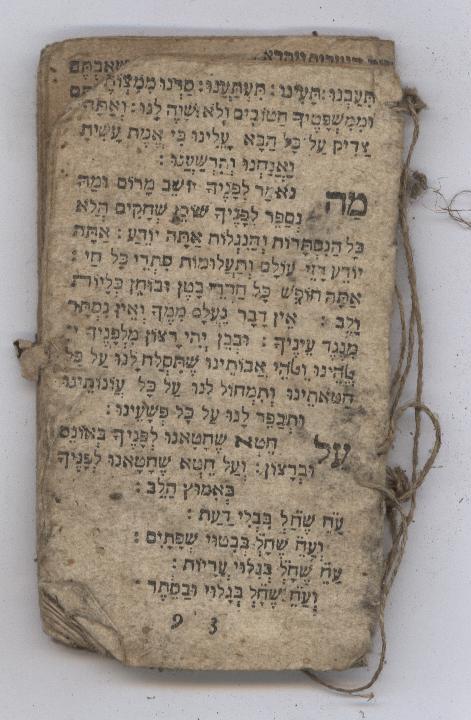 שאבתם
תעבנו: תעינו: תעתענו: סרנו ממצותיך
וממשפטיך הטובים ולא שוה לנו: ואתה
צדיק על כל הבא עלינו כי אמת עשית
ואנחנו והרשענו:
מה נאמר לפניך יושב מרום ומה
נספר לפניך שוכן שחקים הלא
כל הנסתרות והנגלות אתה יודע: אתה
יודע רזי עולם ותעלומות סתרי כל חי:
אתה חופש כל חדרי בטן ובוחן כליות
ולב: אין דבר נעלם ממך ואין נסתר
מנגד עיניך: ובכן יהי רצון מלפניך יי
אלהינו ואלהי אבותינו שתסלח לנו על כל
חטאתינו ותמחול לנו על כל עונותינו
ותכפר לנו על כל פשעינו:
על חטא שחטאנו לפניך באונס
וברצון: ועל חטא שחטאנו לפניך
באמוץ הלב:
עח שחל בבלי דעת:
ועח שחל בבטוי שפתים:
עח שחל בגלוי עריות:
ועח שחל בגלוי ובסתר
9 3